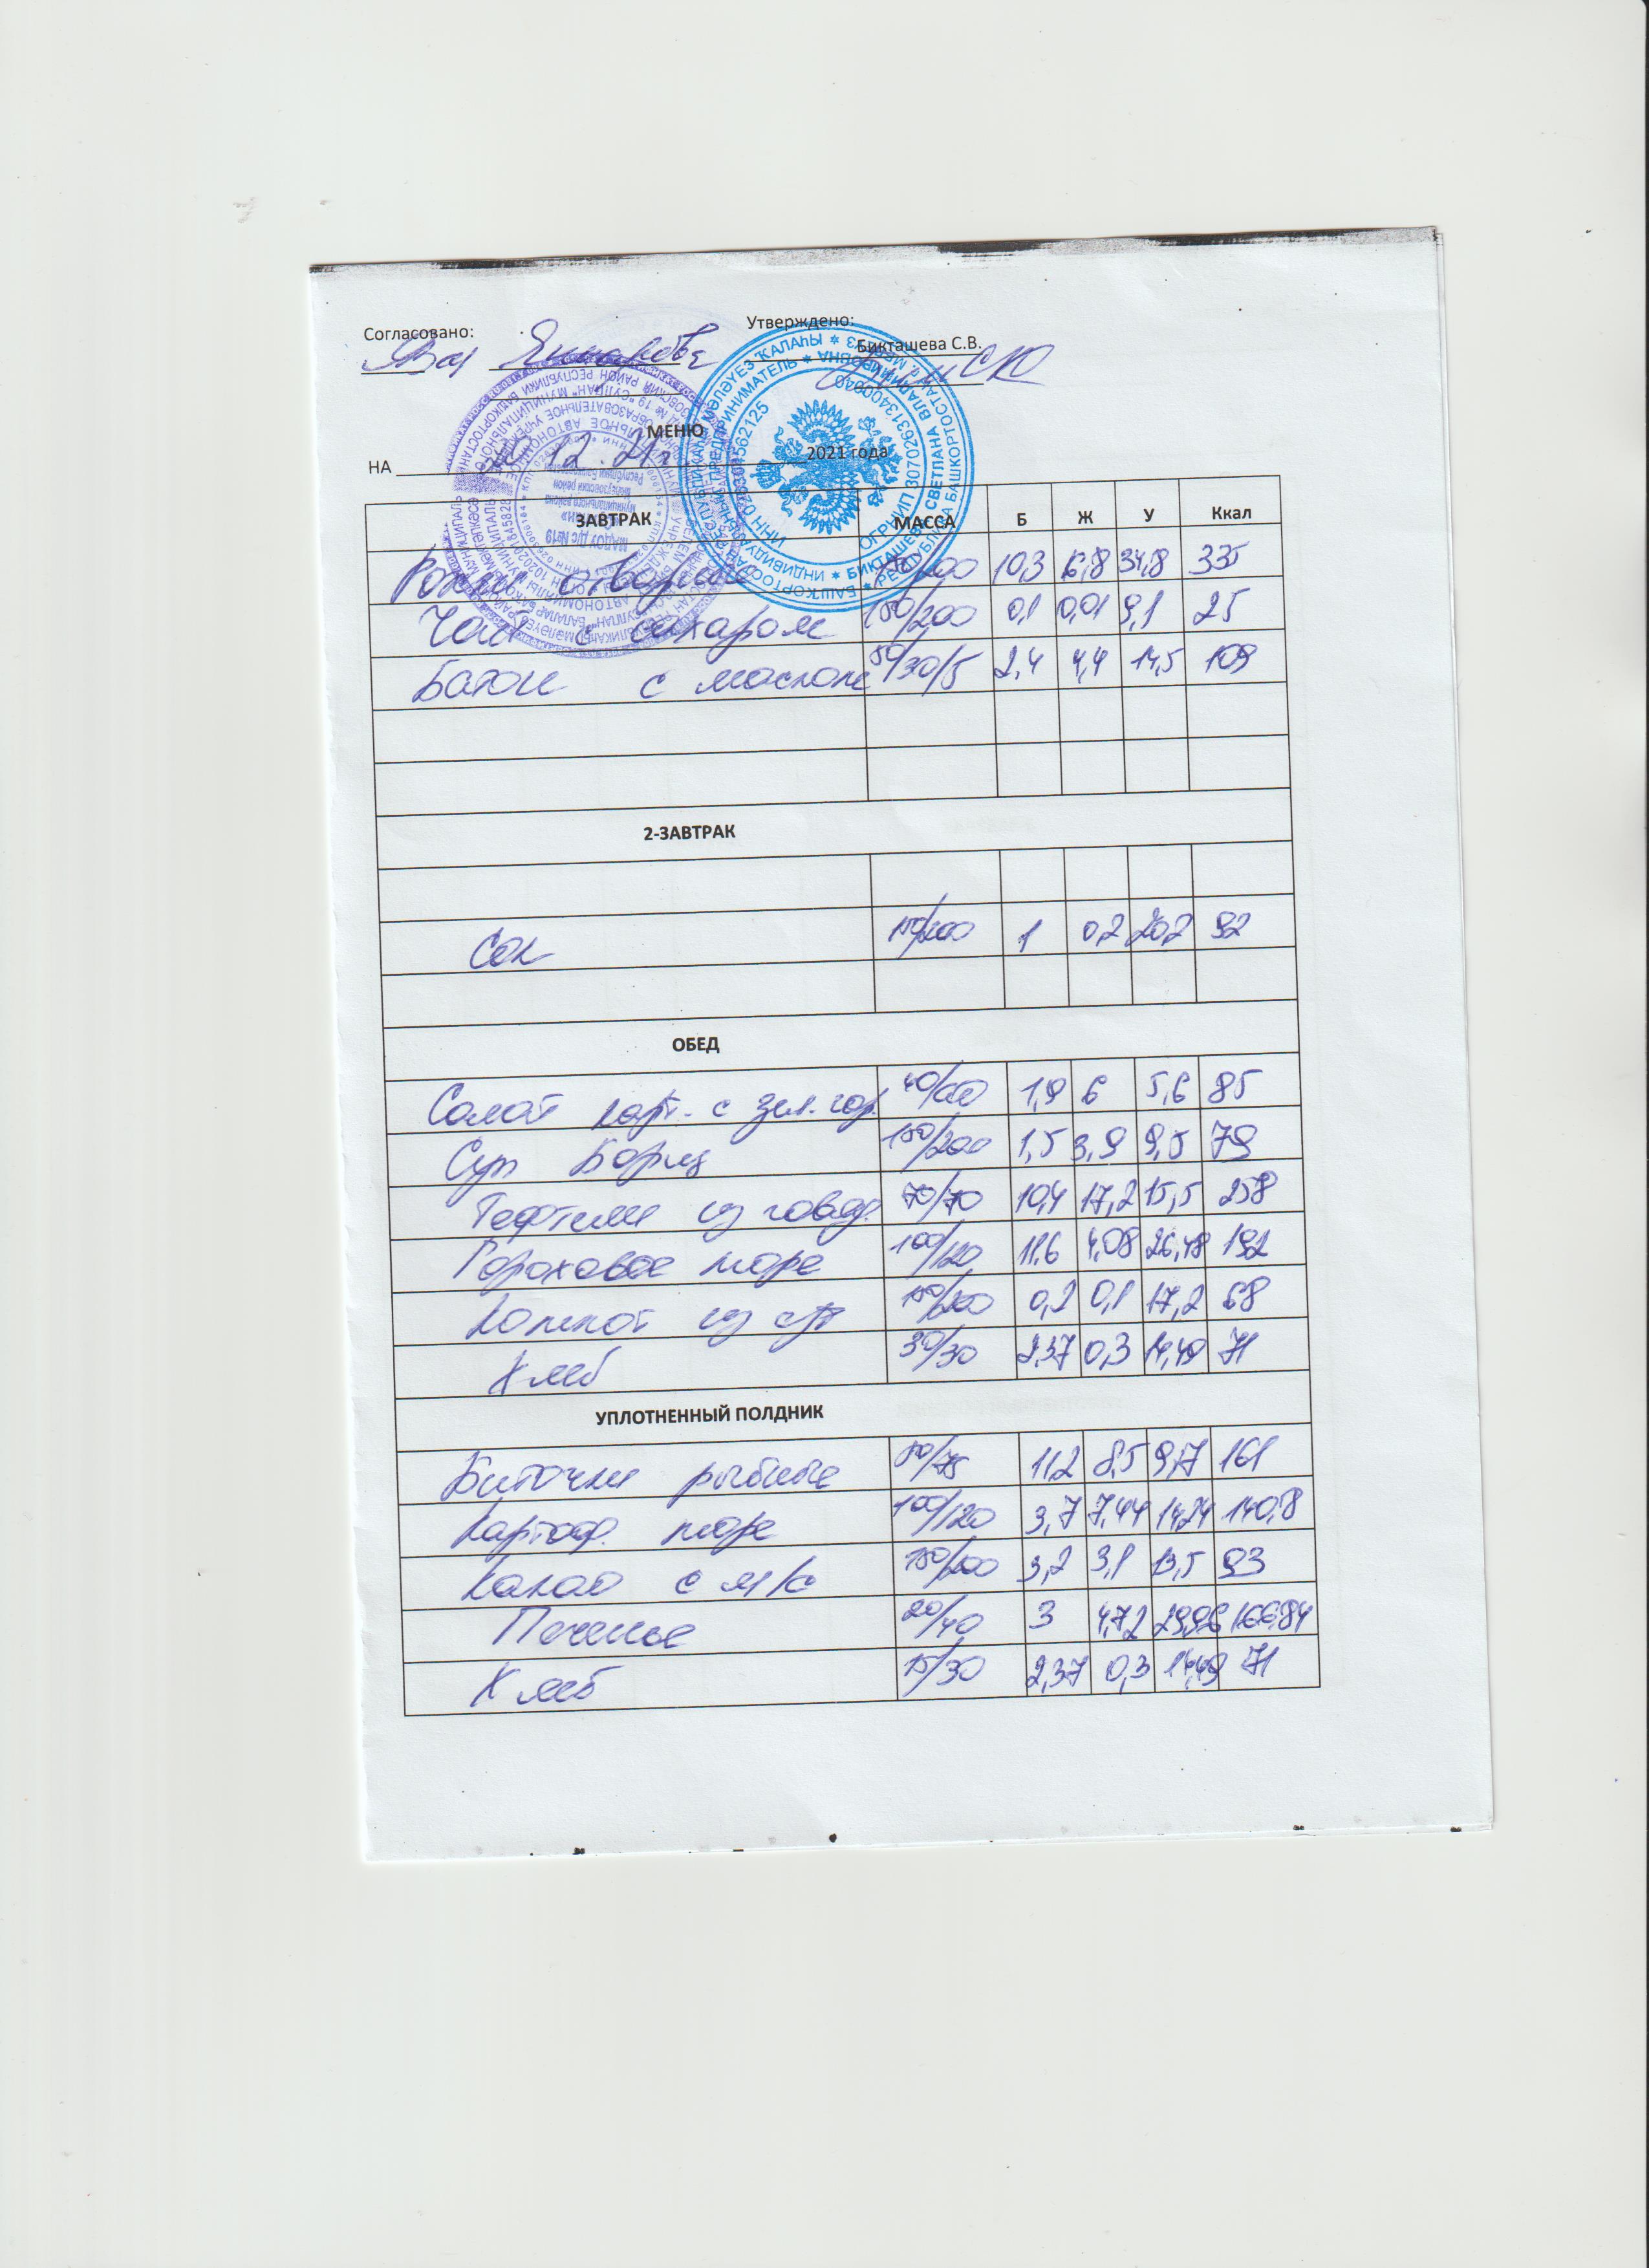 Согласовано: Утверждено:
Бикташева С.В.
МЕНЮ
НА 30 12. 21г 2021 года
ЗАВТРАК МАССА Б Ж У Ккал
Рожки отварные 150/200 10,3 6,8 34,8 335
Чай с сахаром 150/200 0,1 0,01 9,1 25
Батон с маслом 30/5 2,4 4,4 14,5 109
2-ЗАВТРАК
Сок 150/200 1 0,2 20,2 92
ОБЕД
Салат карт. с зел. гор. 40/60 1,9 6 5,6 85
Суп Борщ 150/200 1,5 3,9 9,5 79
Тефтели из говяд. 70/70 10,4 17,2 15,5 258
Гороховое пюре 100/120 11,6 4,08 26,48 192
Компот из с/ф 150/200 0,2 0,1 17,2 68
Хлеб 30/30 2,37 0,3 14,49 71
УПЛОТНЕННЫЙ ПОЛДНИК
Биточки рыбные 50/75 11,2 8,5 9,7 161
Картоф. пюре 100/120 3,7 7,44 14,24 140,8
Какао с м/с 150/200 3,2 3,1 13,5 93
Печенье 20/40 3 4,72 29,96 166,84
Хлеб 15/30 2,37 0,3 14,49 71